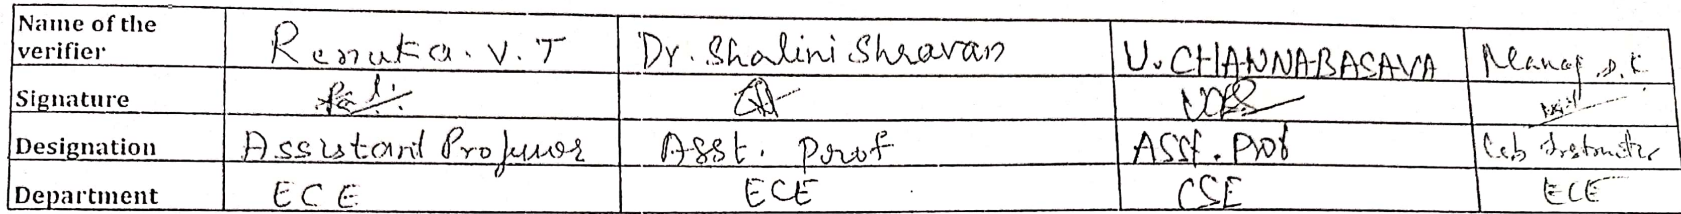 Name of the verifier Renuka. V. T Dr. Shalini Shravan U. CHANNABASAVA Manoj .D. K
Signature
Designation Assistant Professor Asst. Prof Asst. Prof Lab Instructor
Department ECE ECE CSE ECE